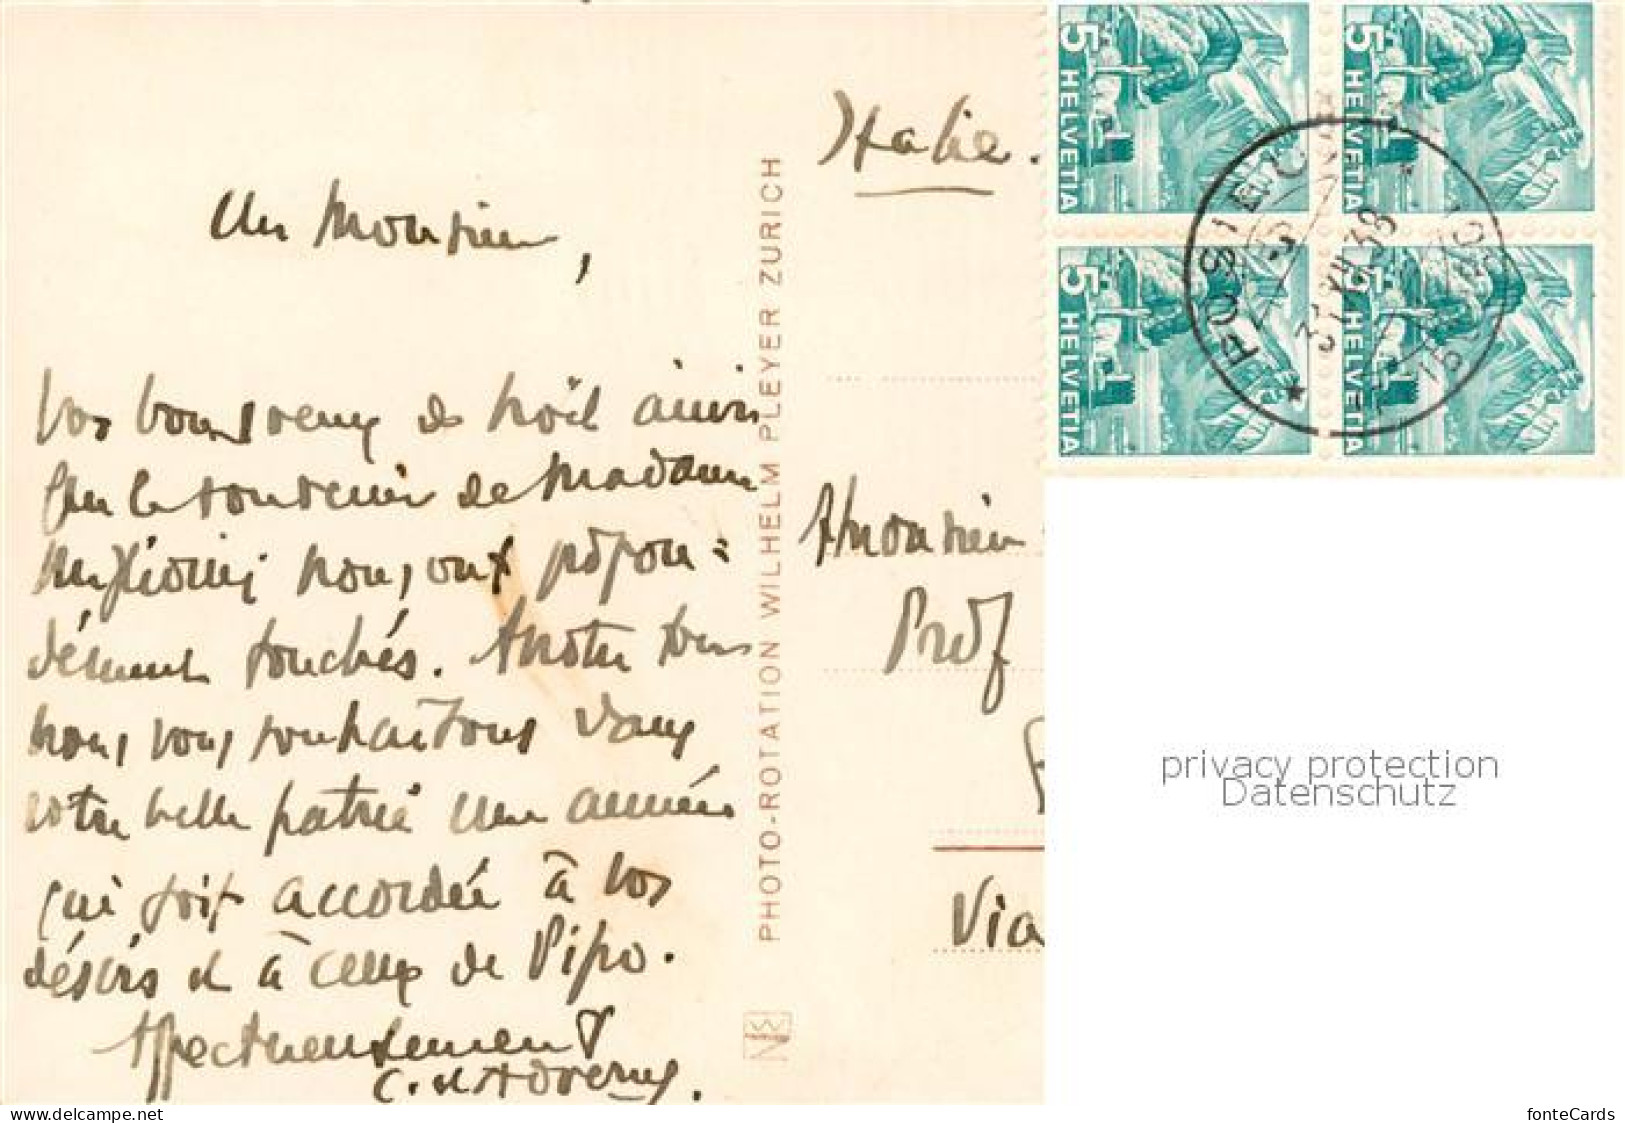 Italie.
Monsieur,
Vos bons vœux de Noël ainsi
que le souvenir de Madame
nous ont profon=
dément touchés. A notre tour
nous vous souhaitons dans
votre belle patrie une année
qui soit accordée à vos
désirs et à ceux de Pipo.
Affectueusement
PHOTO-ROTATION WILHELM PLEYER ZURICH
5 HELVETIA
5 HELVETIA
5 HELVETIA
5 HELVETIA
A Monsieur
Prof
Via
privacy protection
Datenschutz
delcampe.net
fonteCards